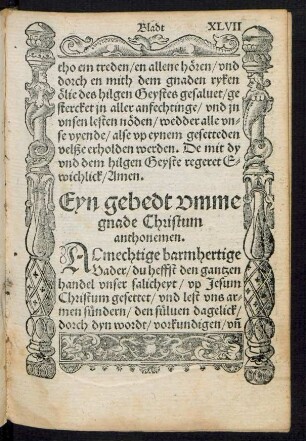 Bladt XLVII
tho em treden/en allene hören/vnd
dorch en mith dem gnaden ryken
ölie des hilgen Geystes gesaluet/ge
stercket jn aller anfechtinge/vnd jn
vnsen lesten nöden/wedder alle vn-
se vyende/alse vp eynem gesetteden
velße erholden werden. De mit dy
vnd dem hilgen Geyste regeret E-
wichlick/Amen.
Eyn gebedt vmme
gnade Christum
anthonemen.
ALmechtige barmhertige
Vader/du heffst den gantzen
handel vnser salicheyt/vp Jesum
Christum gesettet/vnd lest vns ar-
men sündern/den süluen dagelick/
dorch dyn wordt/vorkundigen/vñ